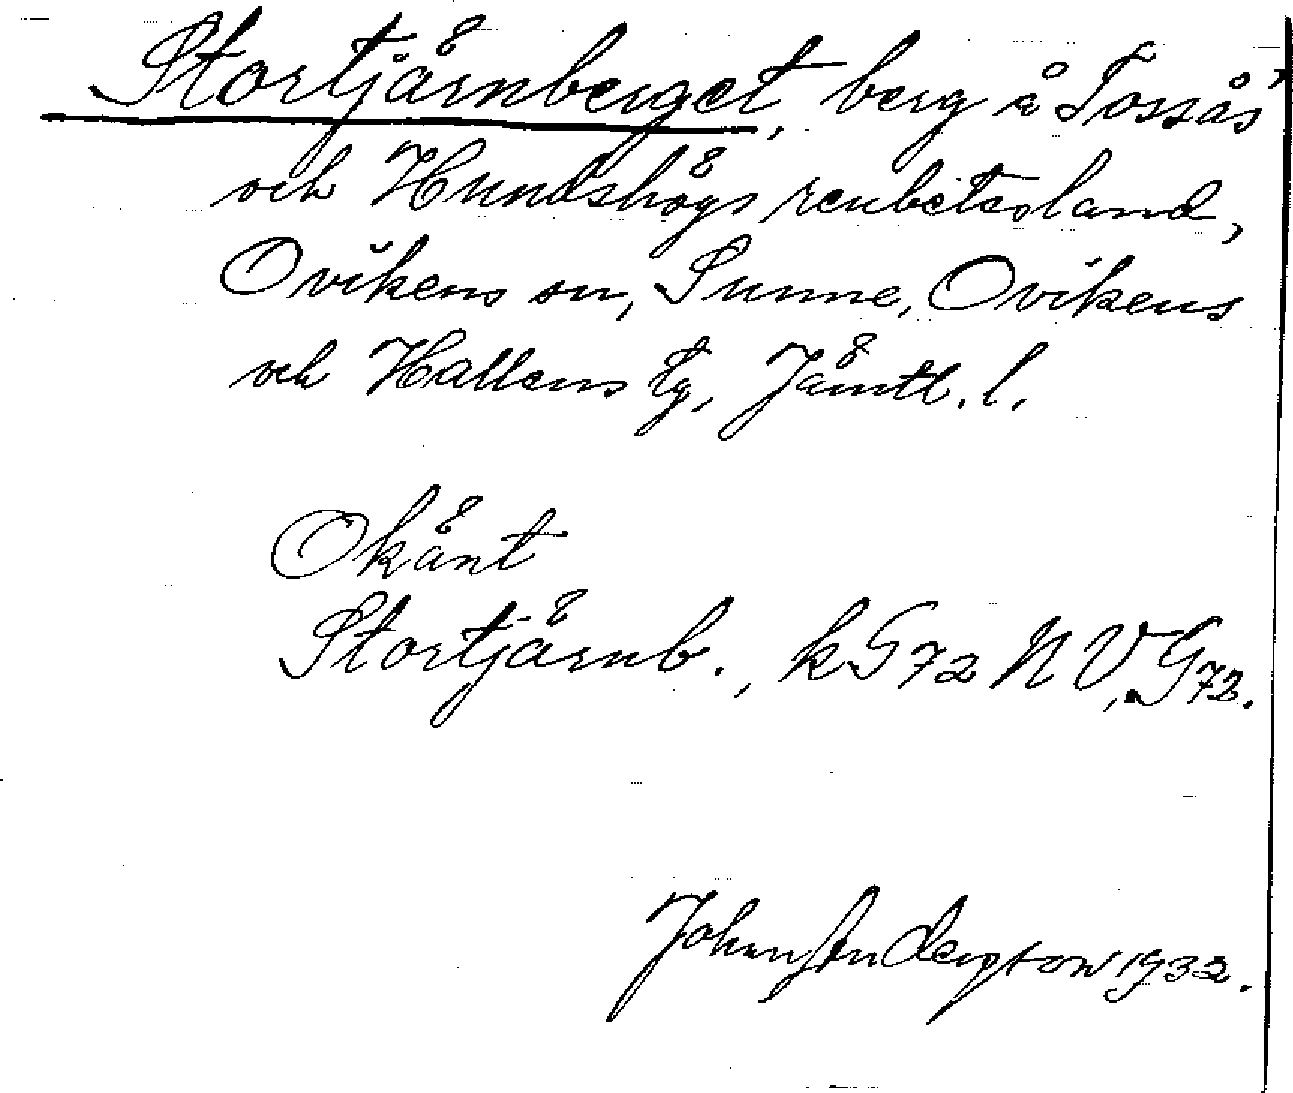 Stortjärnberget, berg å Tossås'
och Hundshögs renbetesland,
Ovikens sn, Sunne, Ovikens
och Hallens tg, Jämtl. l.
Okänt
Stortjärnb., k G 72 N V, G 72.
Johan Anderson 1932.